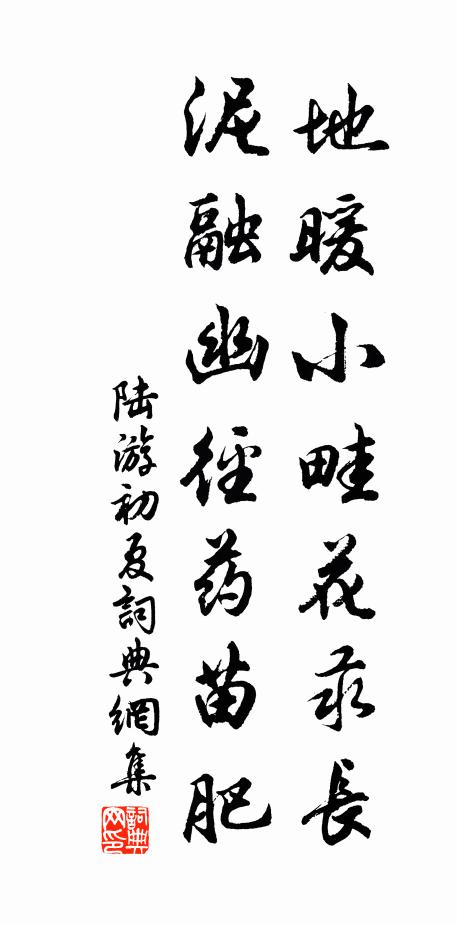 地暖小畦花長
泥融幽徑药苗肥
陆游初夏詞典網集
詞典
网印